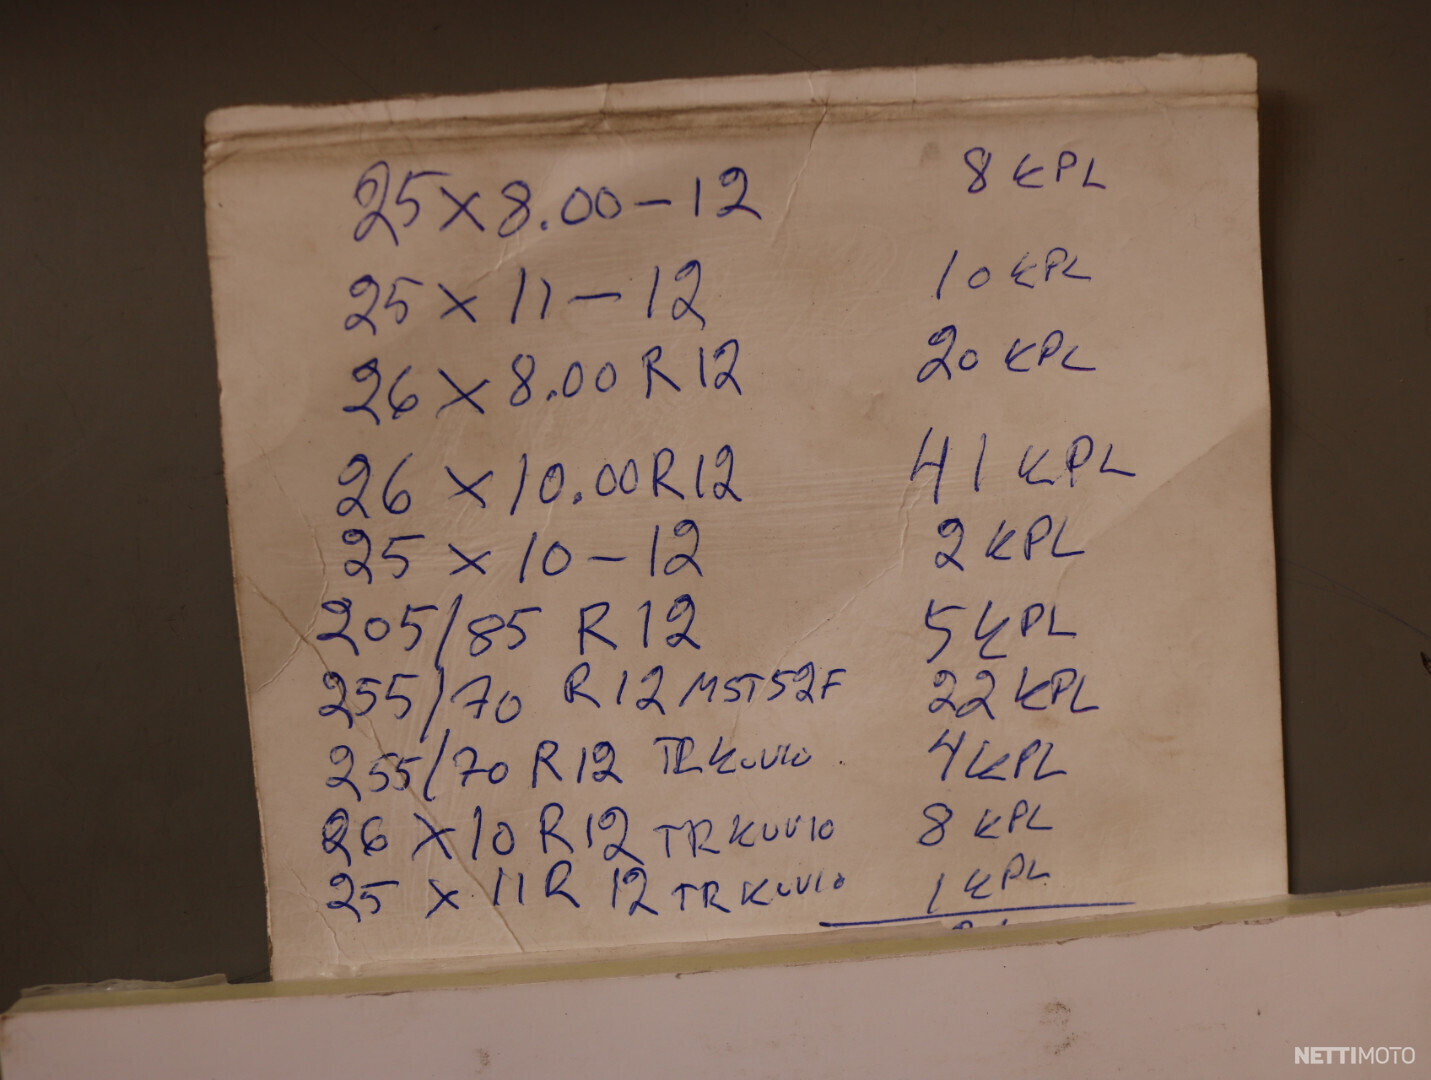 25 x 8.00 - 12 8 KPL
25 x 11 - 12 10 KPL
26 x 8.00 R 12 20 KPL
26 x 10.00 R 12 41 KPL
25 x 10 - 12 2 KPL
205/85 R 12 5 KPL
255/70 R 12 MST52F 22 KPL
255/70 R 12 TR KUVIO 4 KPL
26 x 10 R 12 TR KUVIO 8 KPL
25 x 11 R 12 TR KUVIO 1 KPL
NETTIMOTO